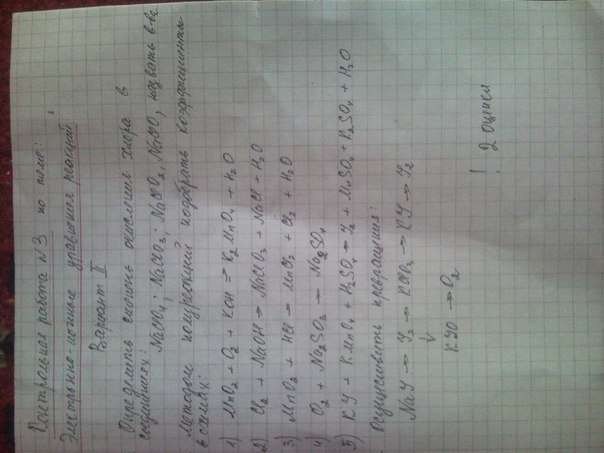 Контрольная работа №3 по теме:
Электронно-ионные уравнения реакций
Вариант II
Определить степень окисления хлора в
соединениях: NaClO4; NaClO3; NaClO2; NaClO, назвать в-ва
Методом полуреакций подобрать коэффициенты
в схемах:
1) MnO2 + O2 + KOH → K2MnO4 + H2O
2) Cl2 + NaOH → NaClO3 + NaCl + H2O
3) MnO2 + HCl → MnCl2 + Cl2 + H2O
4) O2 + Na2SO3 → Na2SO4
5) KY + KMnO4 + H2SO4 → Y2 + MnSO4 + K2SO4 + H2O
Осуществить превращения:
NaY → Y2 → → KY → Y2
↓
KYO → O2
! 2 оценки